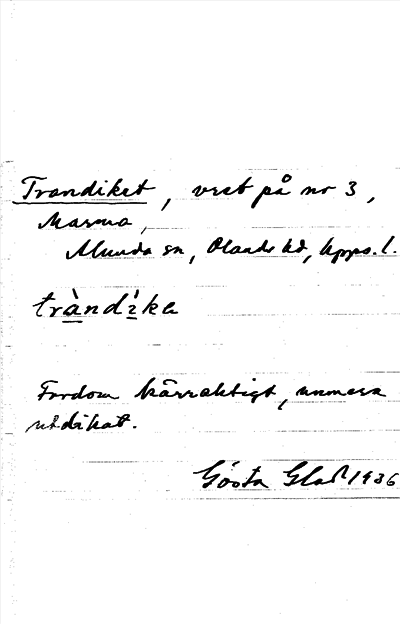 Trandiket, vret på no 3,
Marma,
Alunda sn, Olands hd, Upps. l.
tràndìka
Fordom kärraktigt, numera
utdikat.
Gösta Glad 1936